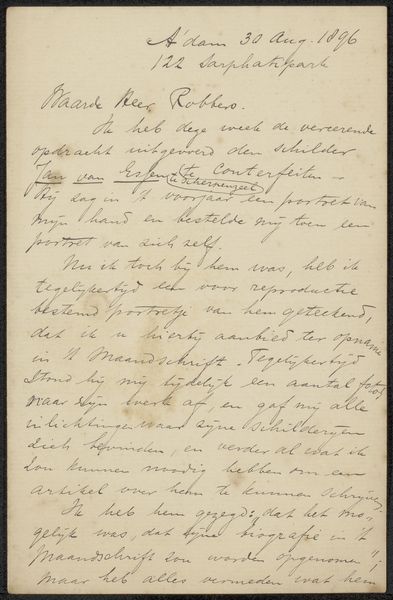 A'dam 30 Aug. 1896
122 Sarphatipark
Waarde Heer Robbers.
Ik heb deze week de vereerende
opdracht uitgevoerd den schilder
Jan van Essen te Conterfeiten -
te Scherpenzeel
Hij zag in 't voorjaar een portret van
mijn hand en bestelde mij toen een
portret van zich zelf.
Nu ik toch bij hem was, heb ik
tegelijkertijd een voor reproductie
bestemd portretje van hem geteekend,
dat ik u hierbij aanbied ter opname
in 't Maandschrift. Tegelijkertijd
stond hij mij tijdelijk een aantal foto's
naar zijn werk af, en gaf mij alle
inlichtingen waar zijne schilderijen
zich bevinden, en verder al wat ik
zou kunnen noodig hebben om een
artikel over hem te kunnen schrijven.
Ik heb hem gezegd, dat het mo-
gelijk was, dat zijne biografie in 't
Maandschrift zou worden opgenomen,
maar heb alles vermeden wat hem